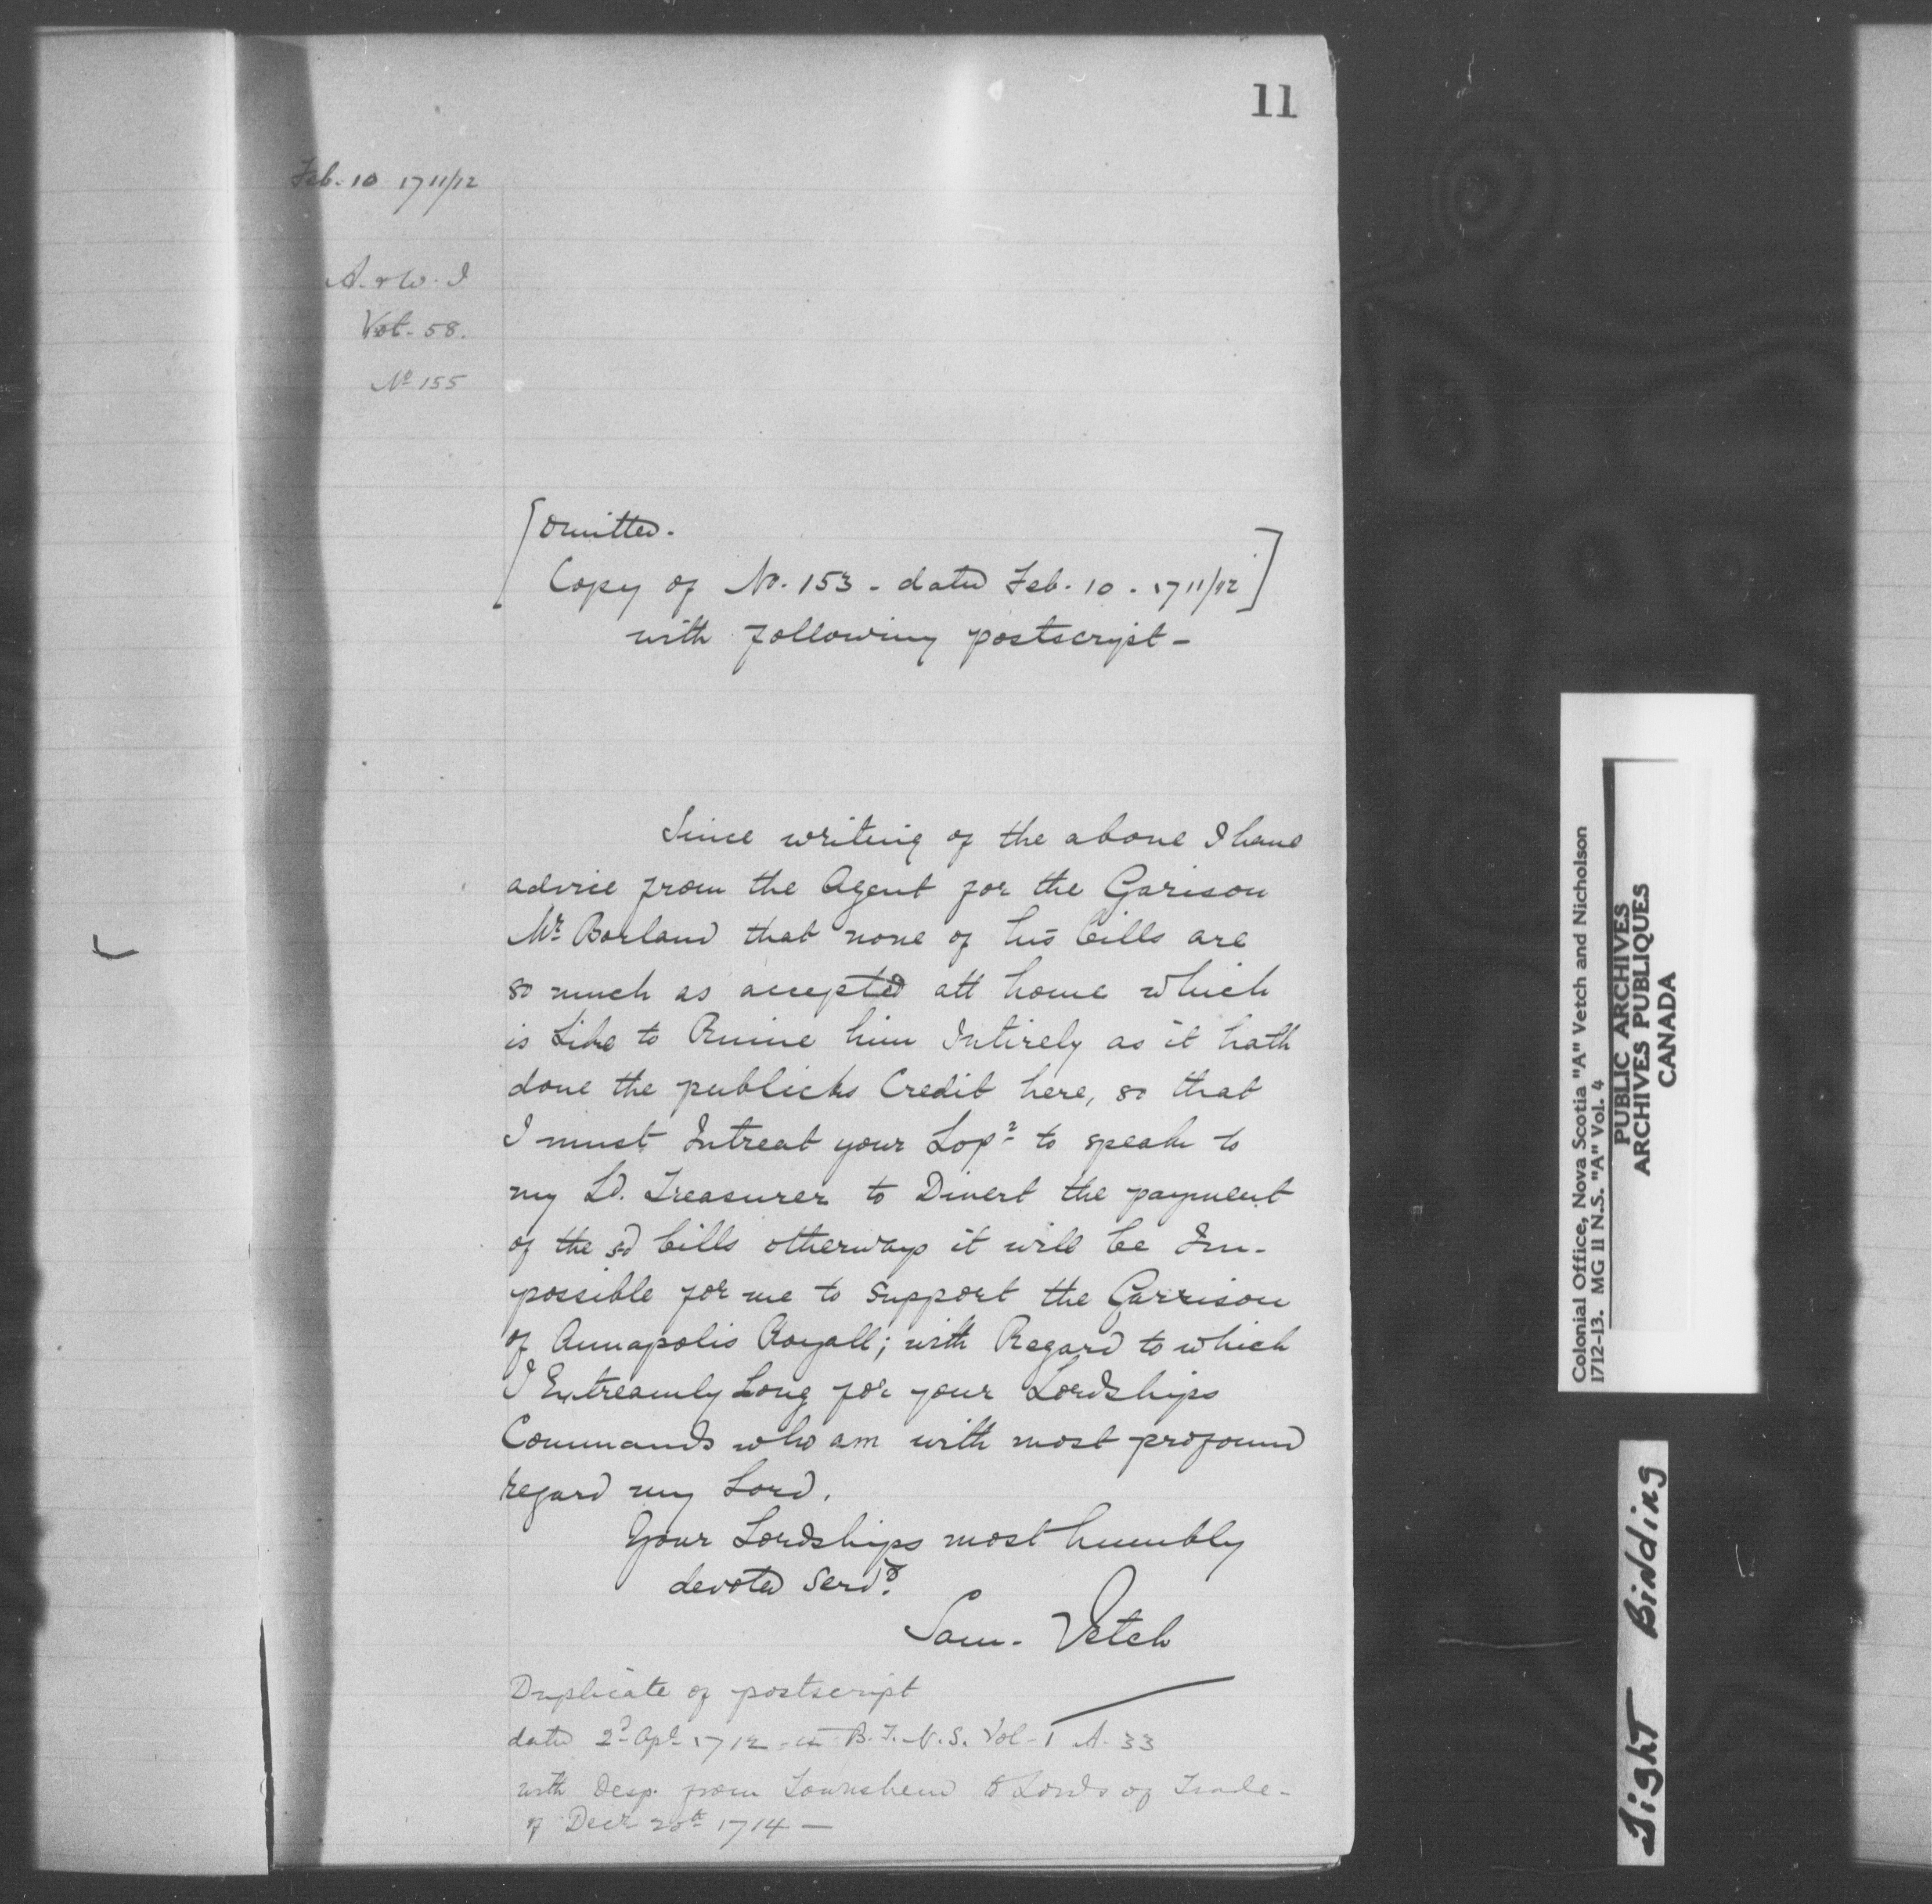 11
Feb. 10 1711/12
A. & W. I
Vol. 58.
No 155
[Omitted.
Copy of No. 153 - dated Feb. 10. 1711/12]
with following postscript -
Since writing of the above I have
advice from the Agent for the Garison
Mr Borland that none of his bills are
so much as accepted att home which
is Like to Ruine him Intirely as it hath
done the publicks Credit here, so that
I must Intreat your Lops to speak to
my Ld. Treasurer to Divert the payment
of the sd bills otherways it will be Im-
possible for me to support the Garrison
of Annapolis Royall; with Regard to which
I Extreamly Long for your Lordships
Commands who am with most profound
regard my Lord.
Your Lordships most humbly
devoted Servt.
Sam. Vetch
Duplicate of postscript
dated 2d Apl 1712 in B.T.N.S. Vol-1 A. 33
with Desp. from Townshend to Lords of Trade -
of Decr 20th 1714 -
Colonial Office, Nova Scotia "A" Vetch and Nicholson
1712-13. MG 11 N.S. "A" Vol. 4
PUBLIC ARCHIVES
ARCHIVES PUBLIQUES
CANADA
Tight Binding